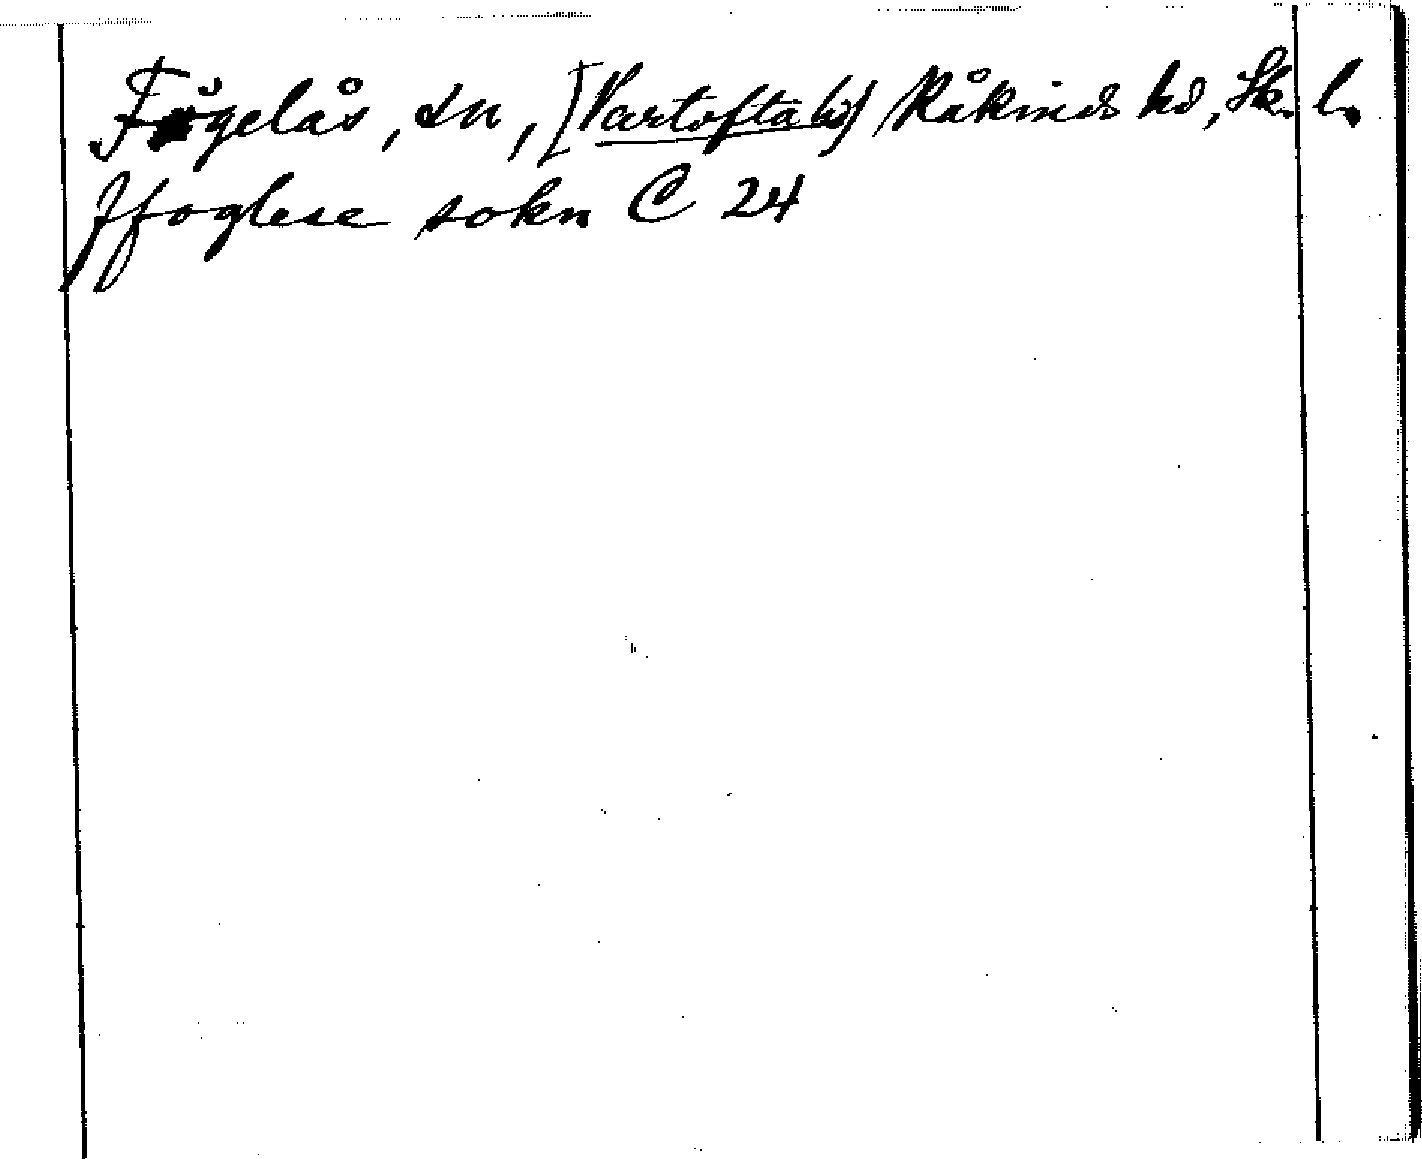 Fågelås, sn, [Vartofta hd] Kåkinds hd, Sk. l.
Ffoglese sokn C 24